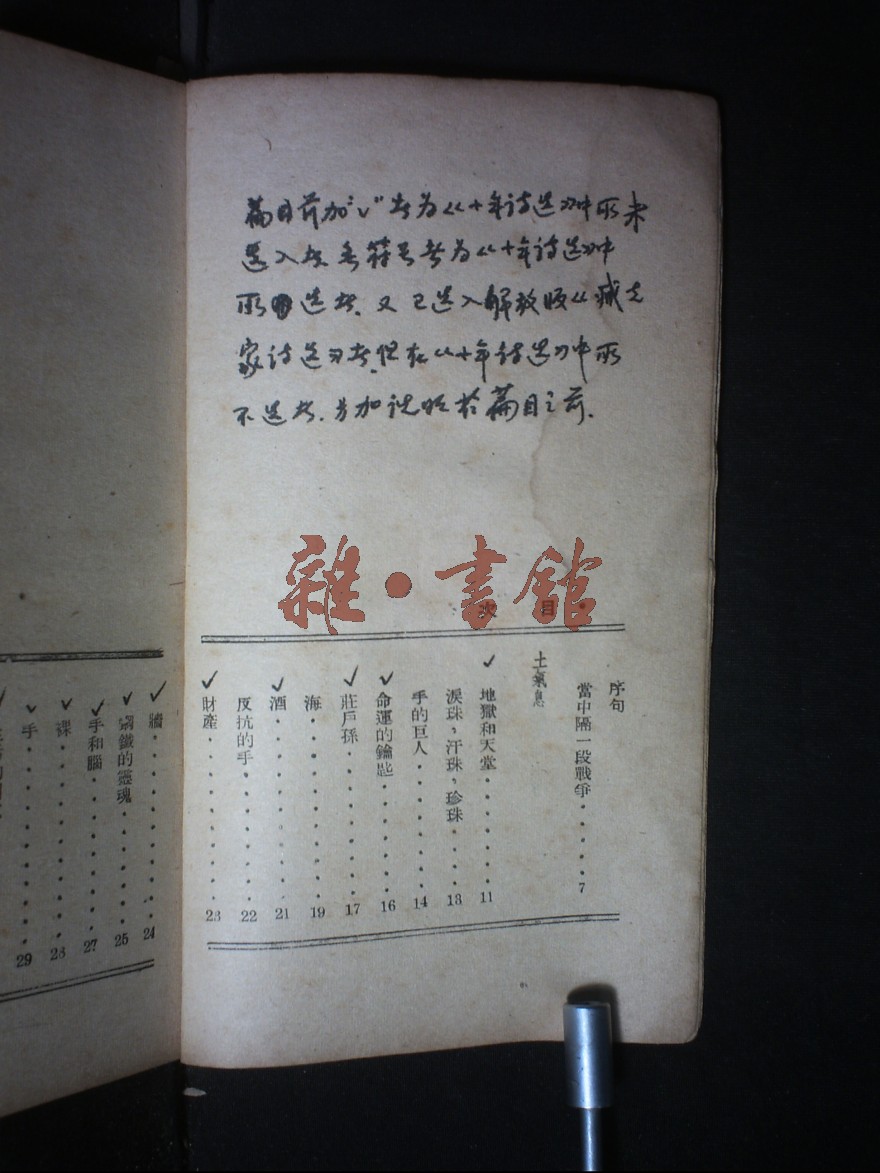 篇目前加“√”者为《十年诗选》中所未
选入者，无符号者为《十年诗选》中
所选者，又已选入解放版《臧克
家诗选》者，但在《十年诗选》中所
不选者，另加说明于篇目之前。
雜·書館
目次
序句
當中隔一段戰爭・・・・・7
土氣息
√地獄和天堂・・・・・・11
淚珠，汗珠，珍珠・・・・13
手的巨人・・・・・・・14
√命運的鑰匙・・・・・・16
√莊戶孫・・・・・・・・17
海・・・・・・・・・・19
√酒・・・・・・・・・・21
反抗的手・・・・・・・22
√財產・・・・・・・・・23
√牆・・・・・・・・・・24
√鋼鐵的靈魂・・・・・・25
√手和腦・・・・・・・・27
√裸・・・・・・・・・・28
√手・・・・・・・・・・29